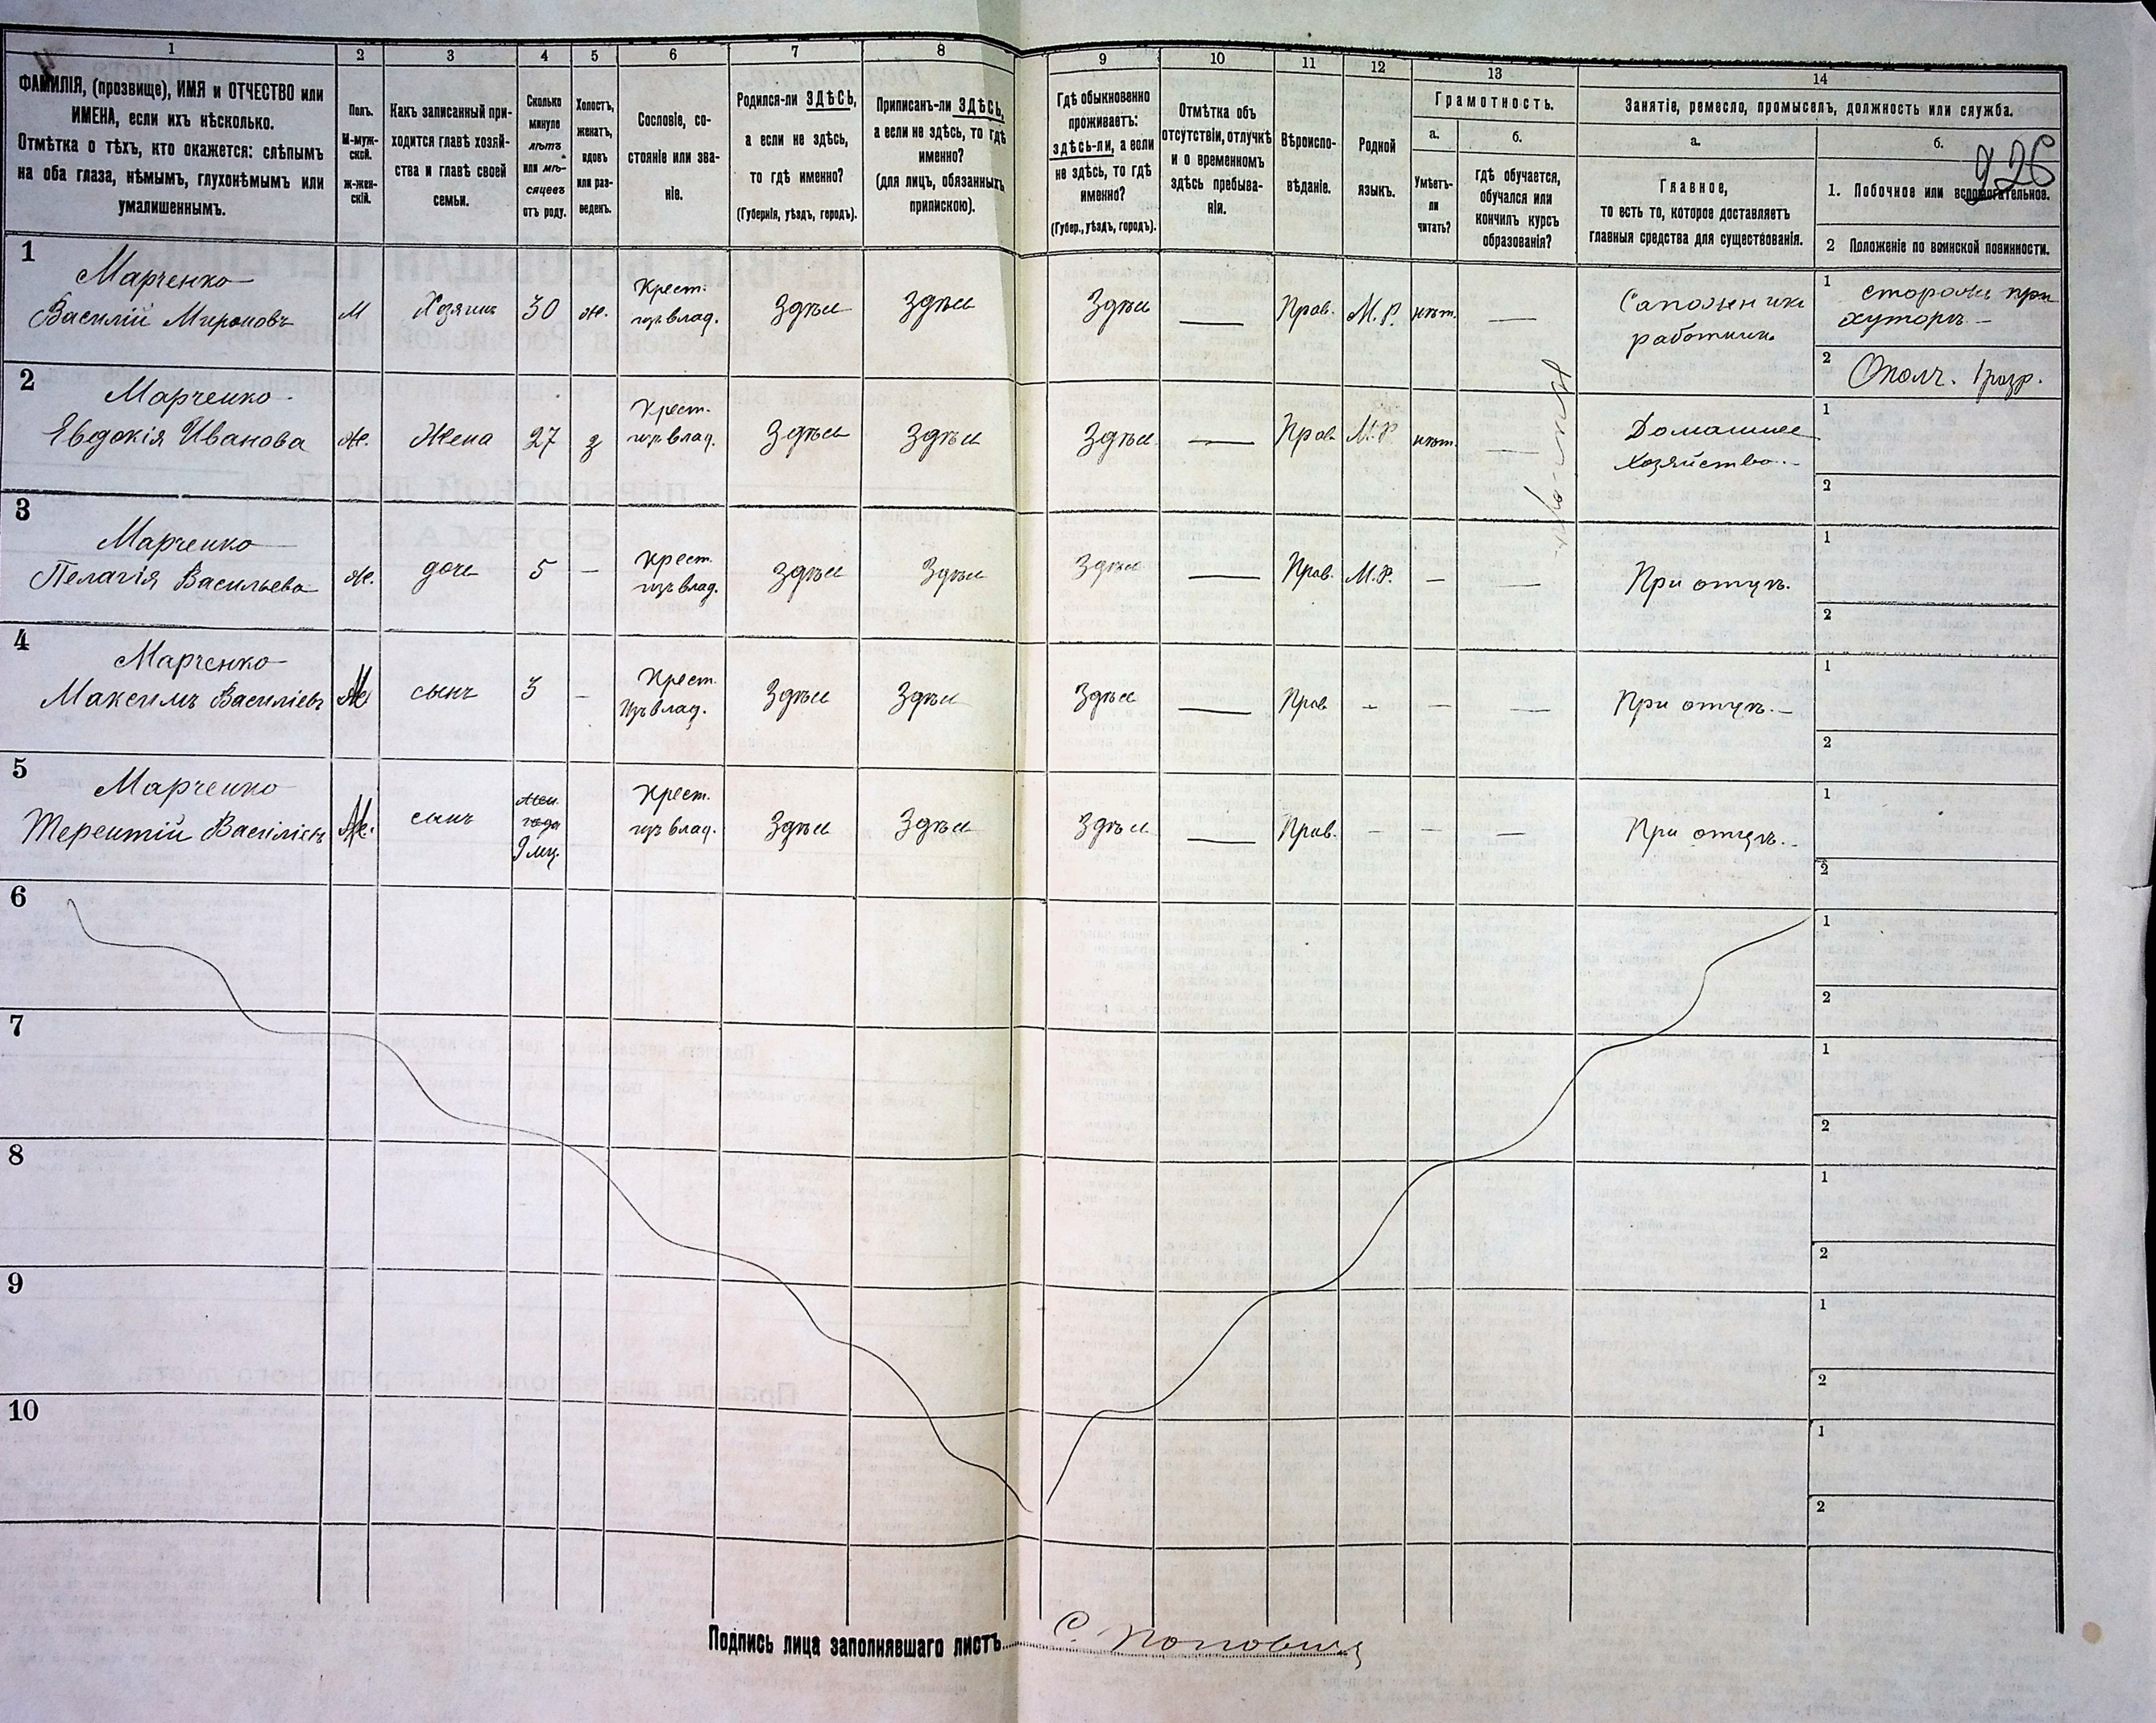 1 2 3 4 5 6 7 8 9 10 11 12 13 14
ФАМИЛІЯ, (прозвище), ИМЯ и ОТЧЕСТВО или
ИМЕНА, если ихъ нѣсколько.
Отмѣтка о тѣхъ, кто окажется: слѣпымъ
на оба глаза, нѣмымъ, глухонѣмымъ или
умалишеннымъ.
Полъ.
М-муж-
ской.
ж-жен-
скій.
Какъ записанный при-
ходится главѣ хозяй-
ства и главѣ своей
семьи.
Сколько
минуло
лѣтъ
или мѣ-
сяцевъ
отъ роду.
Холостъ,
женатъ,
вдовъ
или раз-
веденъ.
Сословіе, со-
стояніе или зва-
ніе.
Родился-ли ЗДѢСЬ,
а если не здѣсь,
то гдѣ именно?
(Губернія, уѣздъ, городъ).
Приписанъ-ли ЗДѢСЬ,
а если не здѣсь, то гдѣ
именно?
(для лицъ, обязанныхъ
припискою).
Гдѣ обыкновенно
проживаетъ:
здѣсь-ли, а если
не здѣсь, то гдѣ
именно?
(Губер., уѣздъ, городъ).
Отмѣтка объ
отсутствіи, отлучкѣ
и о временномъ
здѣсь пребыва-
ніи.
Вѣроиспо-
вѣданіе.
Родной
языкъ.
Грамотность.
а.
Умѣетъ-
ли
читать?
б.
гдѣ обучается,
обучался или
кончилъ курсъ
образованія?
Занятіе, ремесло, промыселъ, должность или служба.
а.
Главное,
то есть то, которое доставляетъ
главныя средства для существованія.
б.
226
1. Побочное или вспомогательное.
2 Положеніе по воинской повинности.
1
Марченко
Василій Мироновъ
М
Хозяинъ
30
ж.
Крест.
изъ влад.
Здѣсь
Здѣсь
Здѣсь
—
Прав.
М. Р.
нѣт.
—
Сапожникъ
работникъ
1 сторожъ при
хуторѣ —
2 Ополч. 1 разр.
2
Марченко
Евдокія Иванова
ж.
Жена
27
з
Крест.
изъ влад.
Здѣсь
Здѣсь
Здѣсь
—
Прав
М. Р
нѣт.
—
Домашнее
хозяйство. -
1
2
3
Марченко
Пелагія Васильева
ж.
дочь
5
—
Крест.
изъ влад.
Здѣсь
Здѣсь
Здѣсь
—
Прав.
М. Р.
—
—
При отцѣ.
1
2
4
Марченко
Максимъ Василіевъ
М
сынъ
3
—
Крест.
Изъ влад.
Здѣсь
Здѣсь
Здѣсь
—
Прав
-
—
—
При отцѣ. —
1
2
5
Марченко
Терентій Василіевъ
М.
сынъ
года
9 мц.
Крест.
изъ влад.
Здѣсь
Здѣсь
Здѣсь
—
Прав.
—
—
—
При отцѣ. -
1
2
6
1
2
7
1
2
8
1
2
9
1
2
10
1
2
Подпись лица заполнявшаго листъ
С. Поповичъ